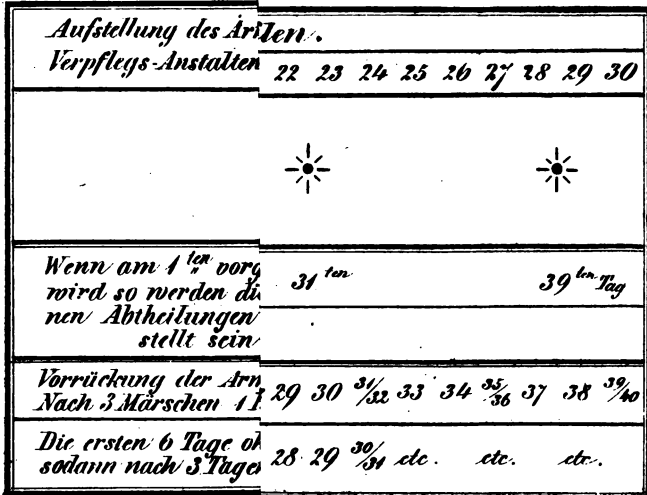 Aufstellung des Är
len.
Verpflegs-Anstalten
22 23 24 25 26 27 28 29 30
Wenn am 1ten vorg
31ten 39ten Tag
wird so werden di
nen Abtheilungen
stellt sein
Vorrückung der Arm
Nach 3 Märschen 1
29 30 31/32 33 34 35/36 37 38 39/40
Die ersten 6 Tage oh
sodann nach 3 Tage
28 29 30/31 etc. etc. etc.